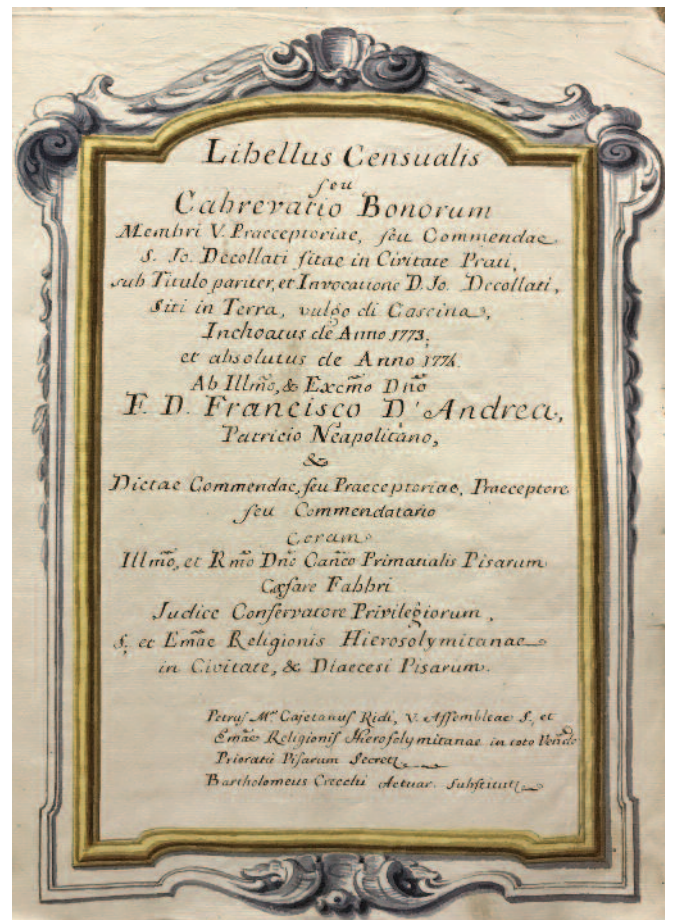 Libellus Censualis
seu
Cabrevatio Bonorum
Membri V. Praeceptoriae, seu Commendae
S. Jo. Decollati sitae in Civitate Prati,
sub Titulo pariter, et Invocatione D. Jo. Decollati,
Siti in Terra, vulgo di Cascina,
Inchoatus de Anno 1773.
et absolutus de Anno 1774.
Ab Illm̃o, & Excm̃o Dnõ
F. D. Francisco D'Andrea,
Patricio Neapolitano,
&
Dictae Commendae, seu Praeceptoriae, Praeceptore
seu Commendatario
Coram
Illm̃o, et Rm̃o Dnõ Cañco Primatialis Pisarum
Caesare Fabbri
Judice Conservatore Privilegiorum,
S. et Em̃ae Religionis Hierosolymitanae
in Civitate, & Diaecesi Pisarum.
Petrus M.ª Cajetanus Ridi, V. Assembleae S., et
Em̃ae Religionis Hierosolymitanae in toto Veñdo
Prioratu Pisarum Secret
Bartholomeus Cecchi Actuar. Substitut